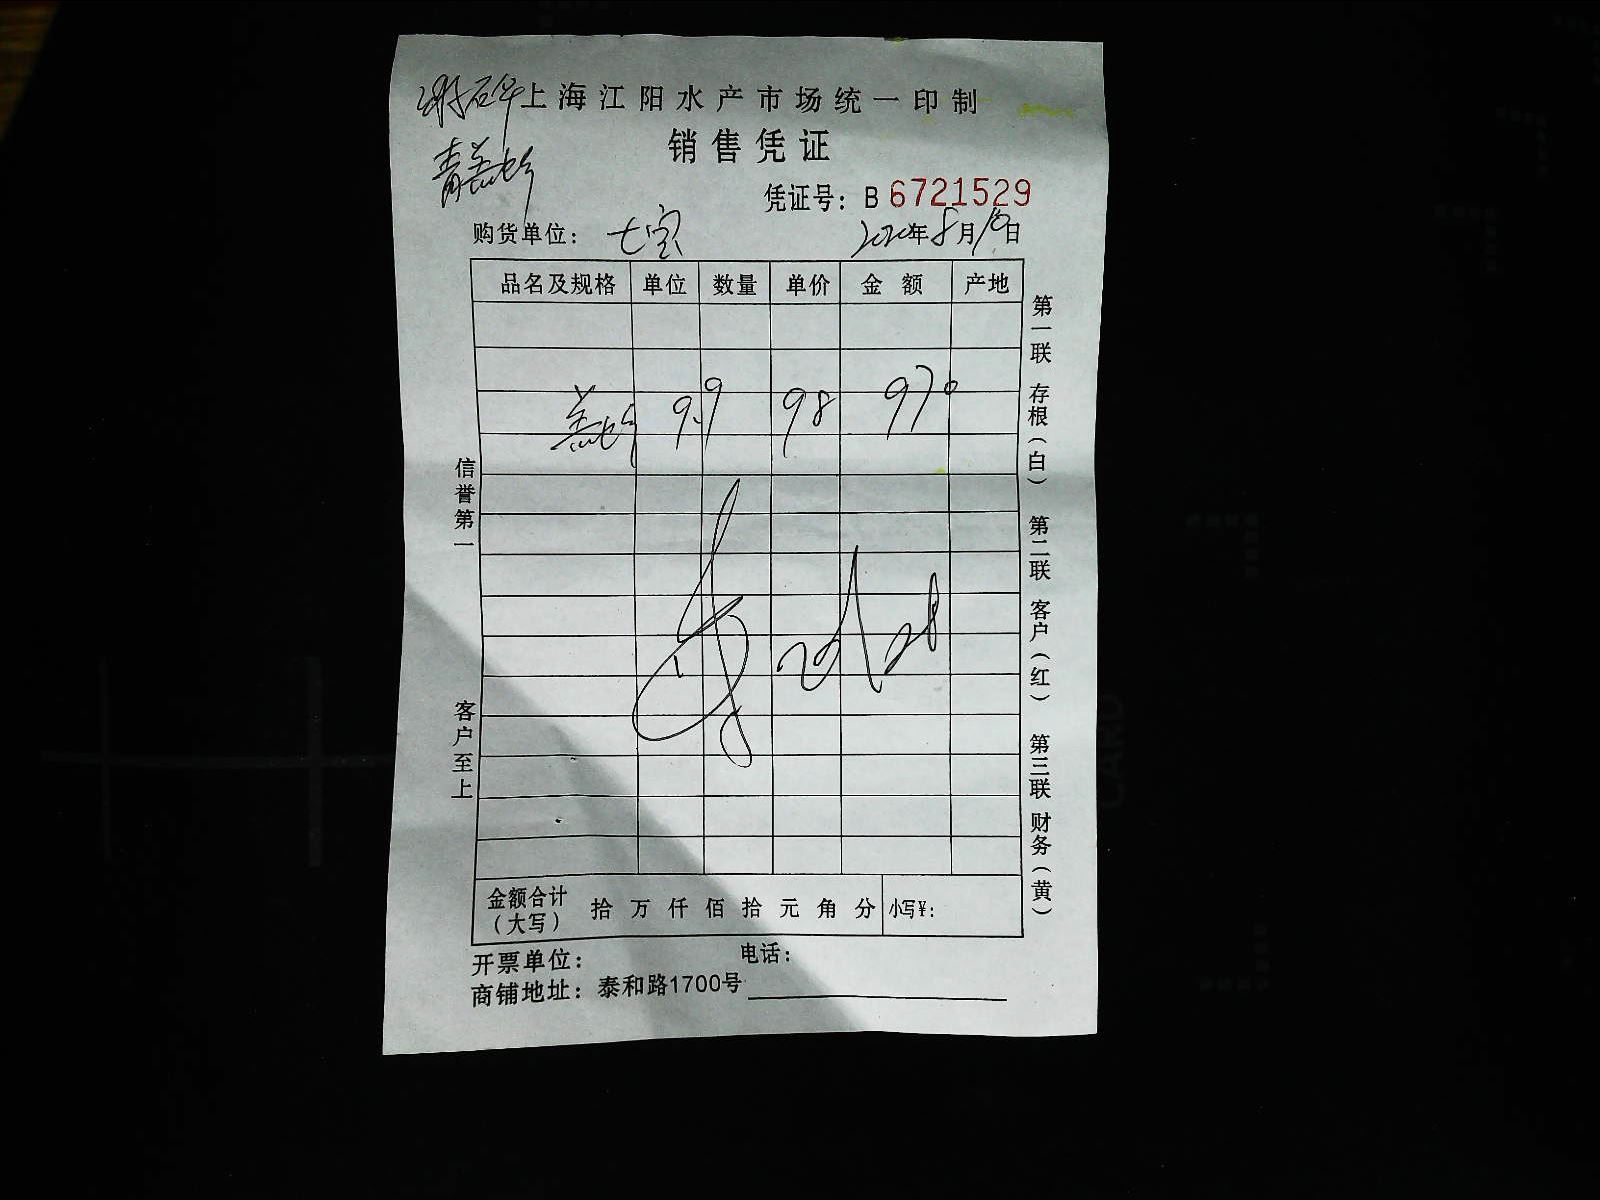 上海江阳水产市场统一印制
销售凭证
凭证号：B 6721529
购货单位： 七宝 2020年8月10日
品名及规格 单位 数量 单价 金额 产地
9.9 98 970
信誉第一
客户至上
第一联 存根（白） 第二联 客户（红） 第三联 财务（黄）
金额合计（大写） 拾 万 仟 佰 拾 元 角 分 小写¥：
开票单位： 电话：
商铺地址：泰和路1700号